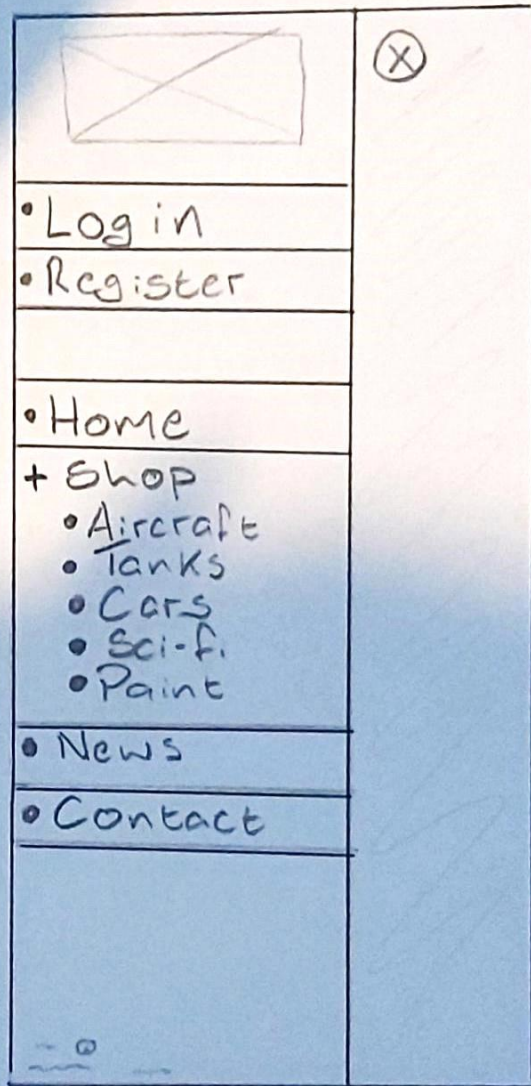 X
• Login
• Register
• Home
+ Shop
• Aircraft
• Tanks
• Cars
• Sci-fi
• Paint
• News
• Contact